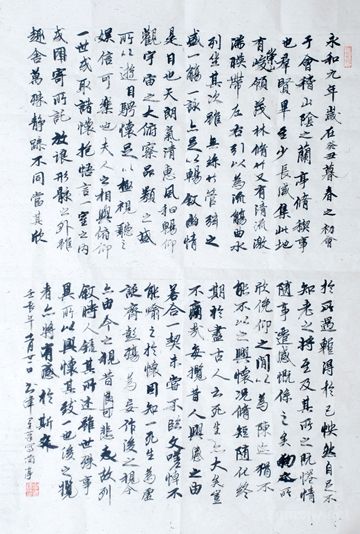 永和九年歲在癸丑暮春之初會
于會稽山陰之蘭亭脩稧事
也羣賢畢至少長咸集此地
有崇山峻領茂林脩竹又有清流激
湍暎帶左右引以為流觴曲水
列坐其次雖無絲竹管弦之
盛一觴一詠亦足以暢敘幽情
是日也天朗氣清惠風和暢仰
觀宇宙之大俯察品類之盛
所以遊目騁懷足以極視聽之
娛信可樂也夫人之相與俯仰
一世或取諸懷抱悟言一室之內
或因寄所託放浪形骸之外雖
趣舍萬殊靜躁不同當其欣
於所遇暫得於己怏然自足不
知老之將至及其所之既惓情
隨事遷感慨係之矣向之所
欣俛仰之間以為陳迹猶不
能不以之興懷況脩短隨化終
期於盡古人云死生亦大矣豈
不痛哉每攬昔人興感之由
若合一契未嘗不臨文嗟悼不
能喻之於懷固知一死生為虛
誕齊彭殤為妄作後之視今
亦由今之視昔悲夫故列
敘時人錄其所述雖世殊事
異所以興懷其致一也後之攬
者亦將有感於斯文
壬辰年